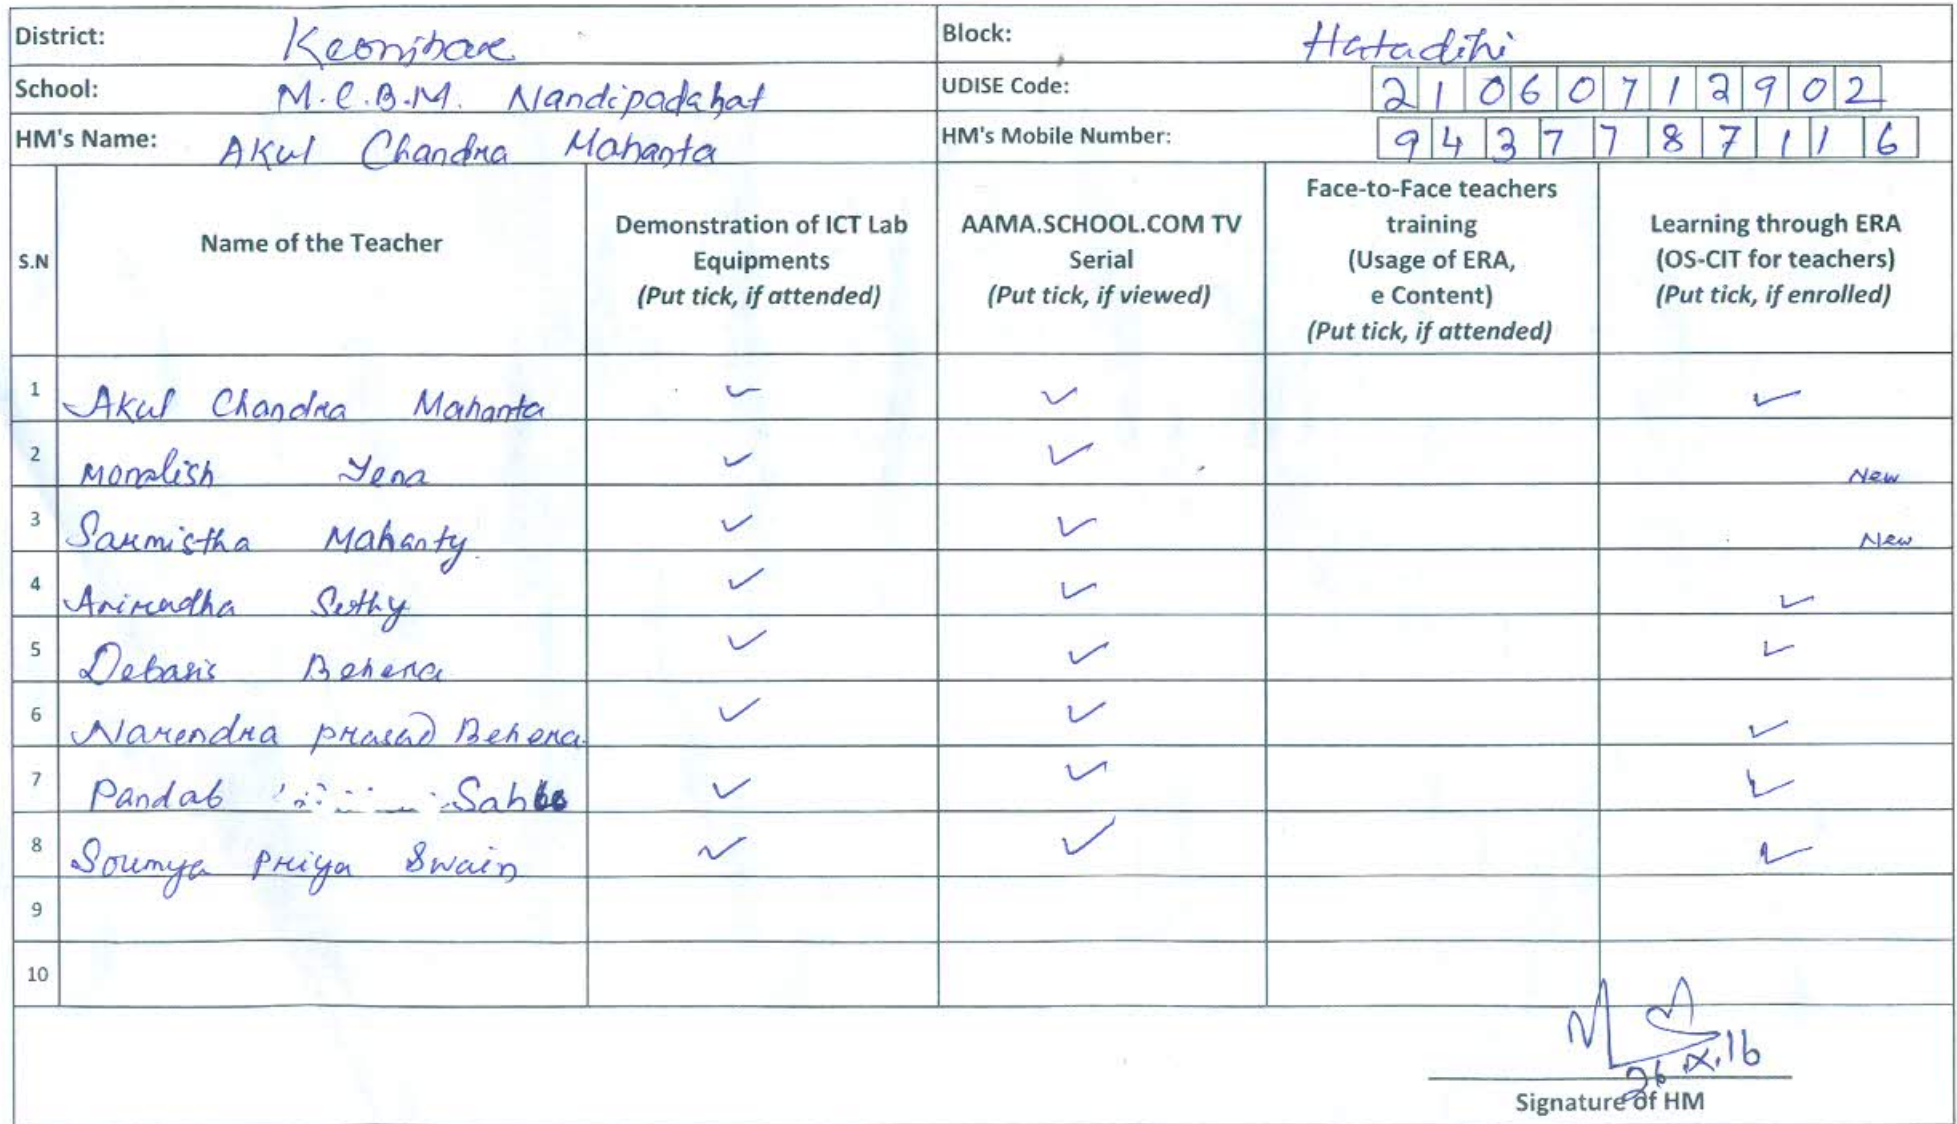 District: Keonjhar Block: Hatadihi
School: M.C.B.M. Nandipadahat UDISE Code: 21060712902
HM's Name: Akul Chandra Mahanta HM's Mobile Number: 9437787116
S.N Name of the Teacher Demonstration of ICT Lab Equipments (Put tick, if attended) AAMA.SCHOOL.COM TV Serial (Put tick, if viewed) Face-to-Face teachers training (Usage of ERA, e Content) (Put tick, if attended) Learning through ERA (OS-CIT for teachers) (Put tick, if enrolled)
1 Akul Chandra Mahanta ✓ ✓ ✓
2 Monalish Jena ✓ ✓ New
3 Sarmistha Mahanty ✓ ✓ New
4 Anirudha Sethy ✓ ✓ ✓
5 Debasis Behera ✓ ✓ ✓
6 Narendra Prasad Behera ✓ ✓ ✓
7 Pandab Sahoo ✓ ✓ ✓
8 Soumya Priya Swain ✓ ✓ ✓
9
10
26.X.16
Signature of HM